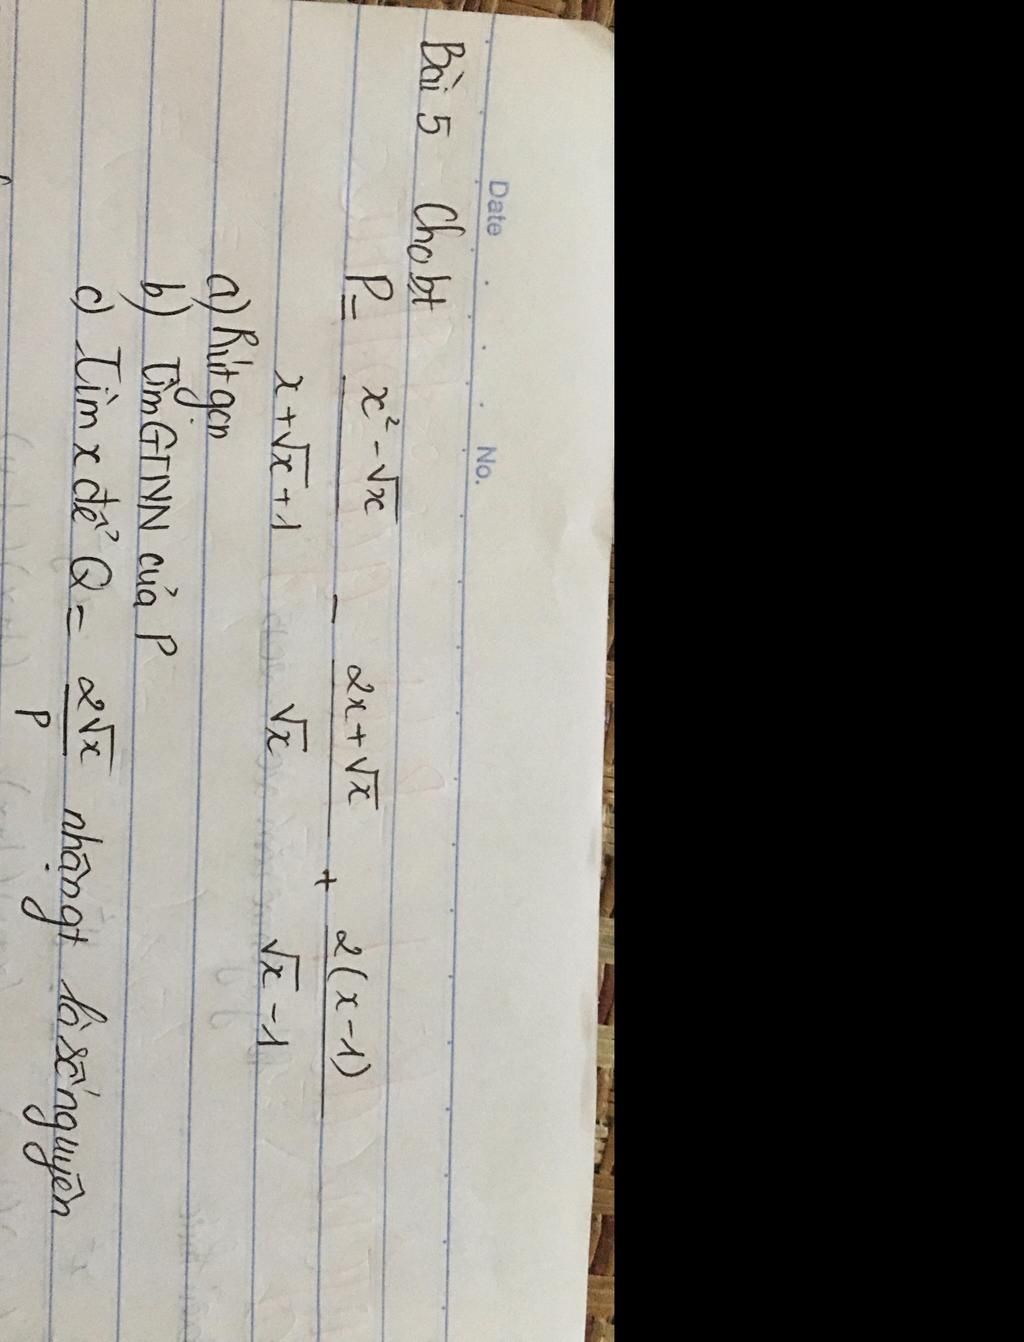 Date No.
Bài 5 Cho bt
P = x² - √x / x + √x + 1 - 2x + √x / √x + 2(x - 1) / √x - 1
a) Rút gọn
b) Tìm GTNN của P
c) Tìm x để Q = 2√x / P nhận gt là số nguyên